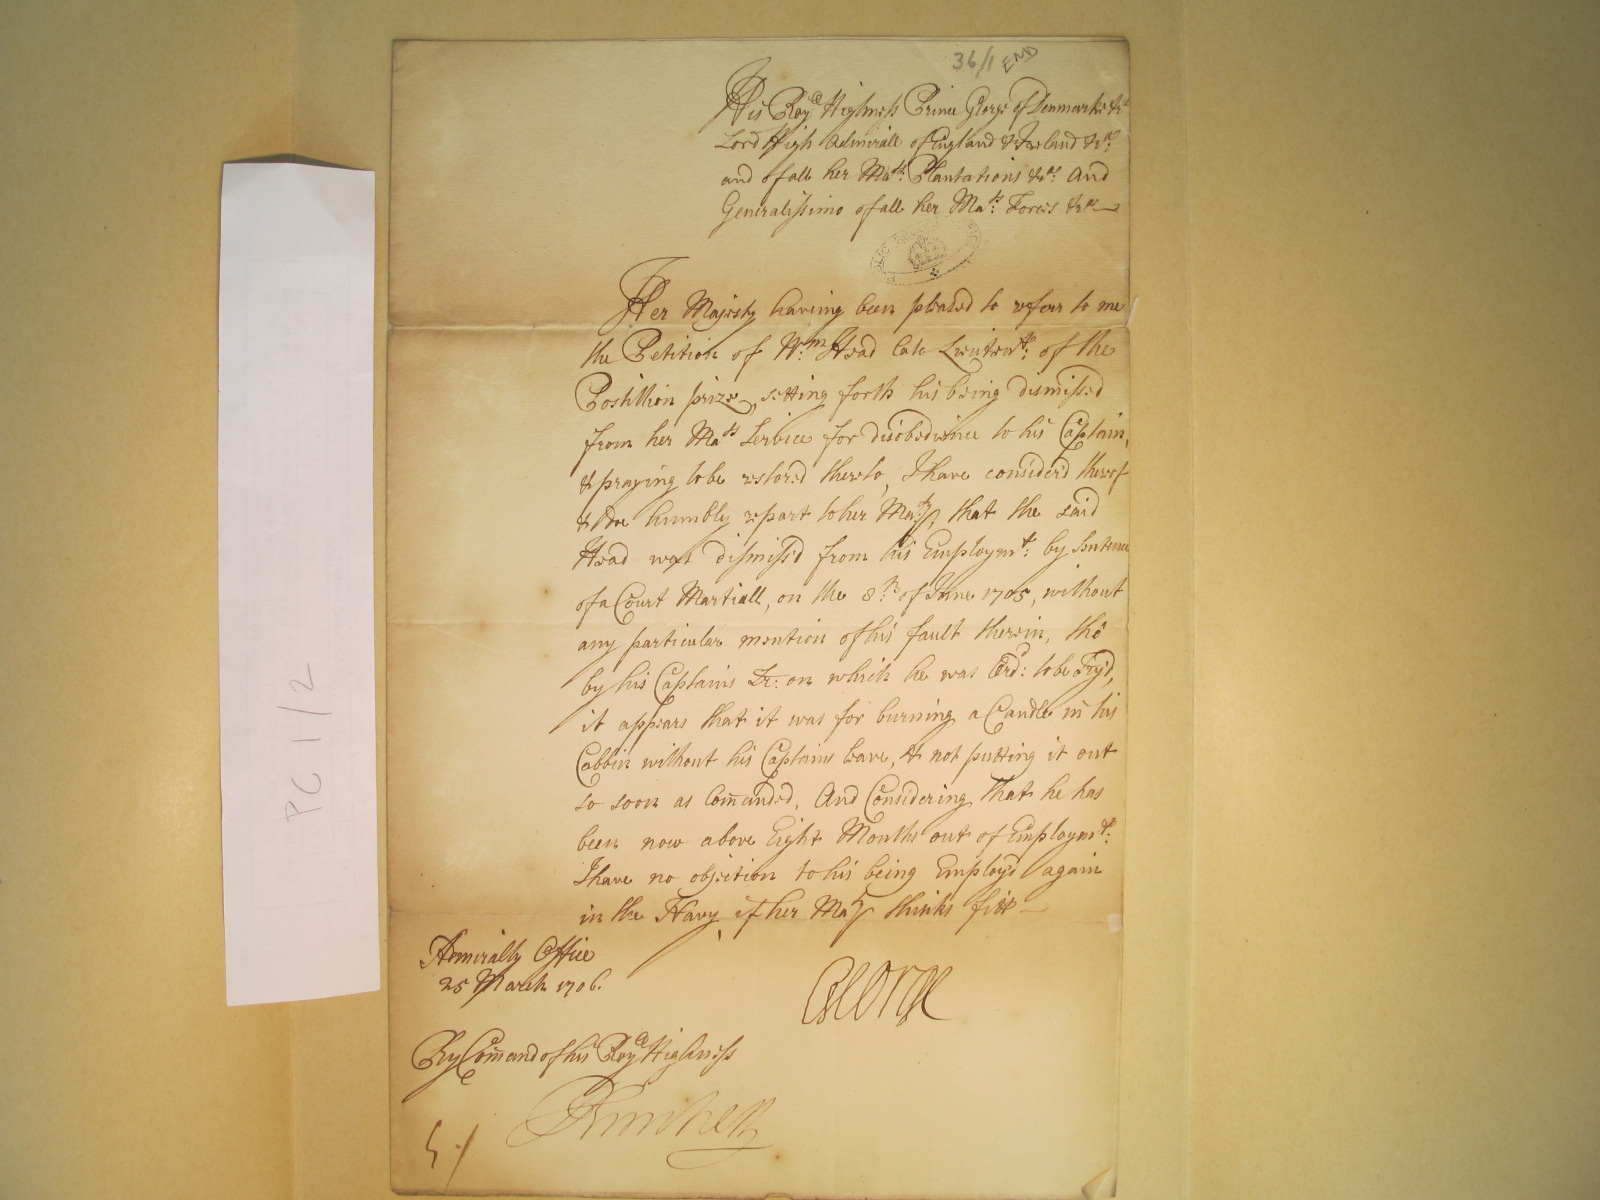 36/1 END
His Roy.ll Highness Prince George of Denmark &c.a
Lord High Admirall of England & Ireland &c.a
and of all her Ma.ts Plantations &c.a And
Generalissimo of all her Ma.ts Forces &c.a
Her Majesty having been pleased to referr to me
the Petition of W.m Head late Lieuten.t of the
Postillion prize, setting forth his being dismissed
from her Ma.ts Service for disobedience to his Captain,
& praying to be restored thereto, I have consider'd thereof
& doe humbly report to her Ma.ty, that the said
Head was dismiss'd from his Employm.t by Sentence
of a Court Martiall, on the 8.th of June 1705, without
any particular mention of his fault therein, tho'
by his Captains Lr: on which he was Ord.d: to be Try'd,
it appears that it was for burning a Candle in his
Cabbin without his Captains leave, & not putting it out
so soon as Com̄anded, And Considering that he has
been now above Eight Months out of Employm.t:
I have no objection to his being Employ'd again
in the Navy, if her Ma.ty thinks fitt
Admiralty Office
25 March 1706.
George
By Com̄and of his Roy.ll Highness
JBurchett
PC 1/2